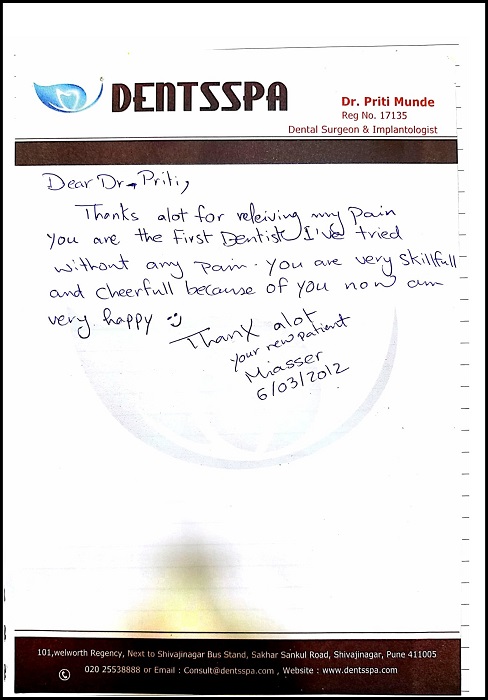 DENTSSPA
Dr. Priti Munde
Reg No. 17135
Dental Surgeon & Implantologist
Dear Dr. Priti,
Thanks alot for releiving my Pain
You are the first Dentist I've tried
without any pain. You are very skillfull
and cheerfull because of you now am
very happy
Thanx alot
your new patient
Miasser
6/03/2012
101,welworth Regency, Next to Shivajinagar Bus Stand, Sakhar Sankul Road, Shivajinagar, Pune 411005
020 25538888 or Email : Consult@dentsspa.com , Website : www.dentsspa.com